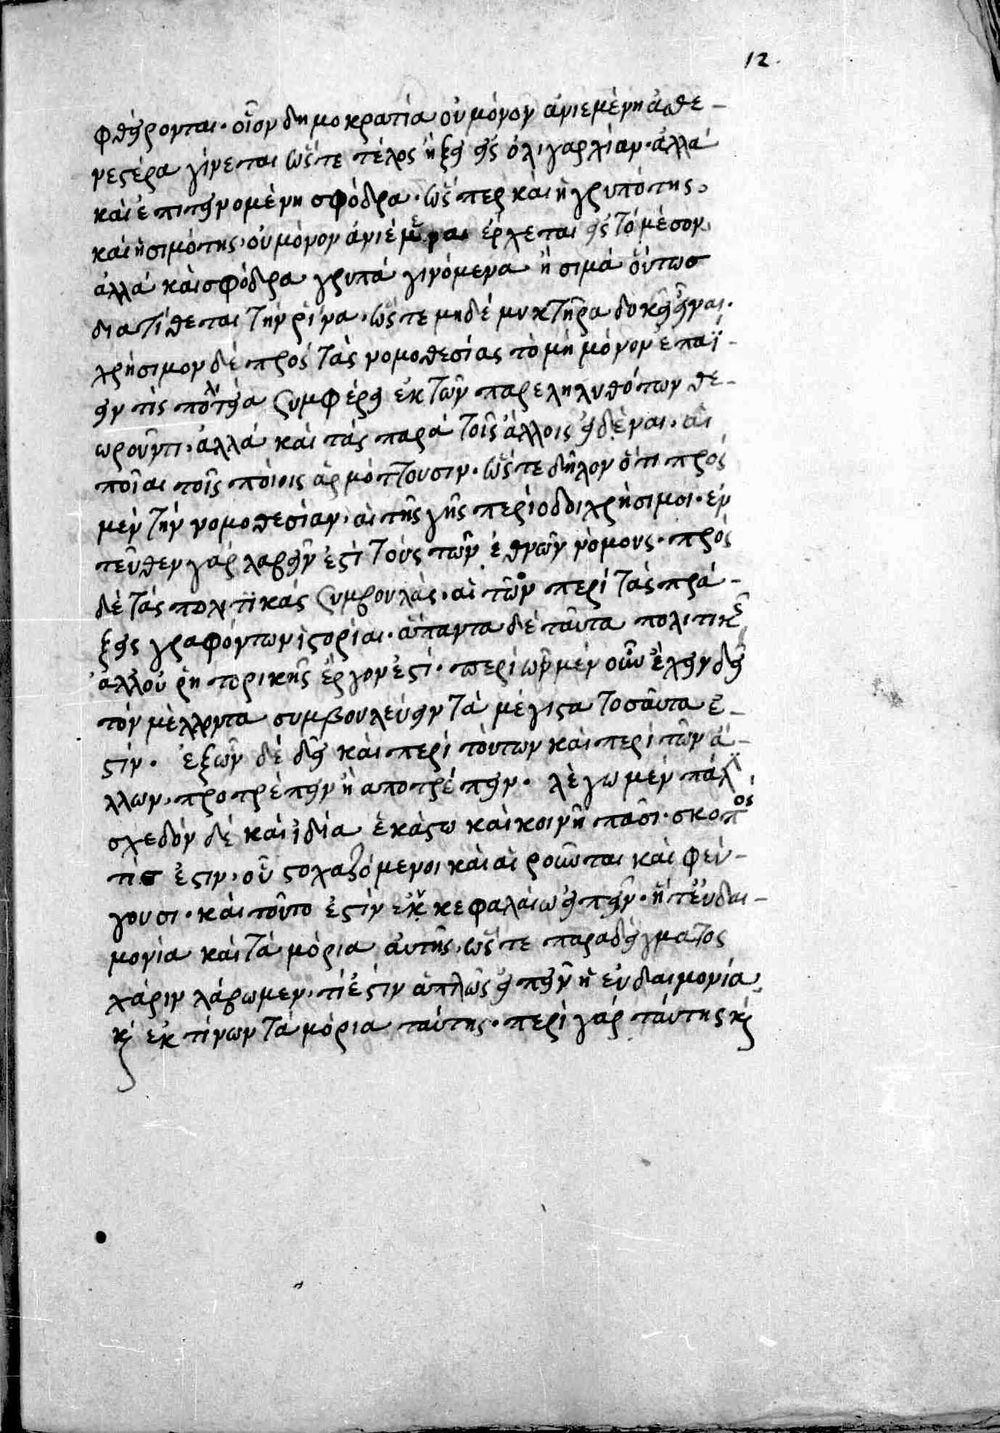 12.
φθείρονται· οἷον δημοκρατία οὐ μόνον ἀνιεμένη ἀσθε-
νεστέρα γίνεται ὥστε τέλος ἥξει εἰς ὀλιγαρχίαν· ἀλλὰ
καὶ ἐπιτεινομένη σφόδρα· ὥσπερ καὶ ἡ γρυπότης,
καὶ ἡ σιμότης, οὐ μόνον ἀνιέμενα ἔρχεται εἰς τὸ μέσον,
ἀλλὰ καὶ σφόδρα γρυπὰ γινόμενα ἢ σιμὰ οὕτως
διατίθεται τὴν ῥίνα, ὥστε μηδὲ μυκτῆρα δοκεῖ εἶναι.
χρήσιμον δὲ πρὸς τὰς νομοθεσίας τὸ μὴ μόνον ἐπαΐ-
ειν τίς πολιτεία συμφέρει ἐκ τῶν παρεληλυθότων θε-
ωροῦντι, ἀλλὰ καὶ τὰς παρὰ τοῖς ἄλλοις εἰδέναι, αἱ
ποῖαι τοῖς ποίοις ἁρμόττουσιν· ὥστε δῆλον ὅτι πρὸς
μὲν τὴν νομοθεσίαν, αἱ τῆς γῆς περίοδοι χρήσιμοι· ἐν
τεῦθεν γὰρ λαβεῖν ἐστὶ τοὺς τῶν ἐθνῶν νόμους· πρὸς
δὲ τὰς πολιτικὰς συμβουλὰς, αἱ τῶν περὶ τὰς πρά-
ξεις γραφόντων ἱστορίαι· ἅπαντα δὲ ταῦτα πολιτικῆς
ἀλλ' οὐ ῥητορικῆς ἔργον ἐστί· περὶ ὧν μὲν οὖν ἔχειν δεῖ
τὸν μέλλοντα συμβουλεύειν τὰ μέγιστα τοσαῦτά ἐ-
στιν. ἐξ ὧν δὲ δεῖ καὶ περὶ τούτων καὶ περὶ τῶν ἄ-
λλων, προτρέπειν ἢ ἀποτρέπειν· λέγωμεν πάλιν,
σχεδὸν δὲ καὶ ἰδίᾳ ἑκάστῳ καὶ κοινῇ πᾶσι· σκοπός
τις ἐστιν, οὗ στοχαζόμενοι καὶ αἱροῦνται καὶ φεύ-
γουσι· καὶ τοῦτο ἐστὶν ἐν κεφαλαίῳ εἰπεῖν· ἥ τ' εὐδαι-
μονία καὶ τὰ μόρια αὐτῆς, ὥστε παραδείγματος
χάριν λάβωμεν, τί ἐστιν ἁπλῶς εἰπεῖν ἡ εὐδαιμονία,
κ̀ ἐκ τίνων τὰ μόρια ταύτης· περὶ γὰρ ταύτης κ̀